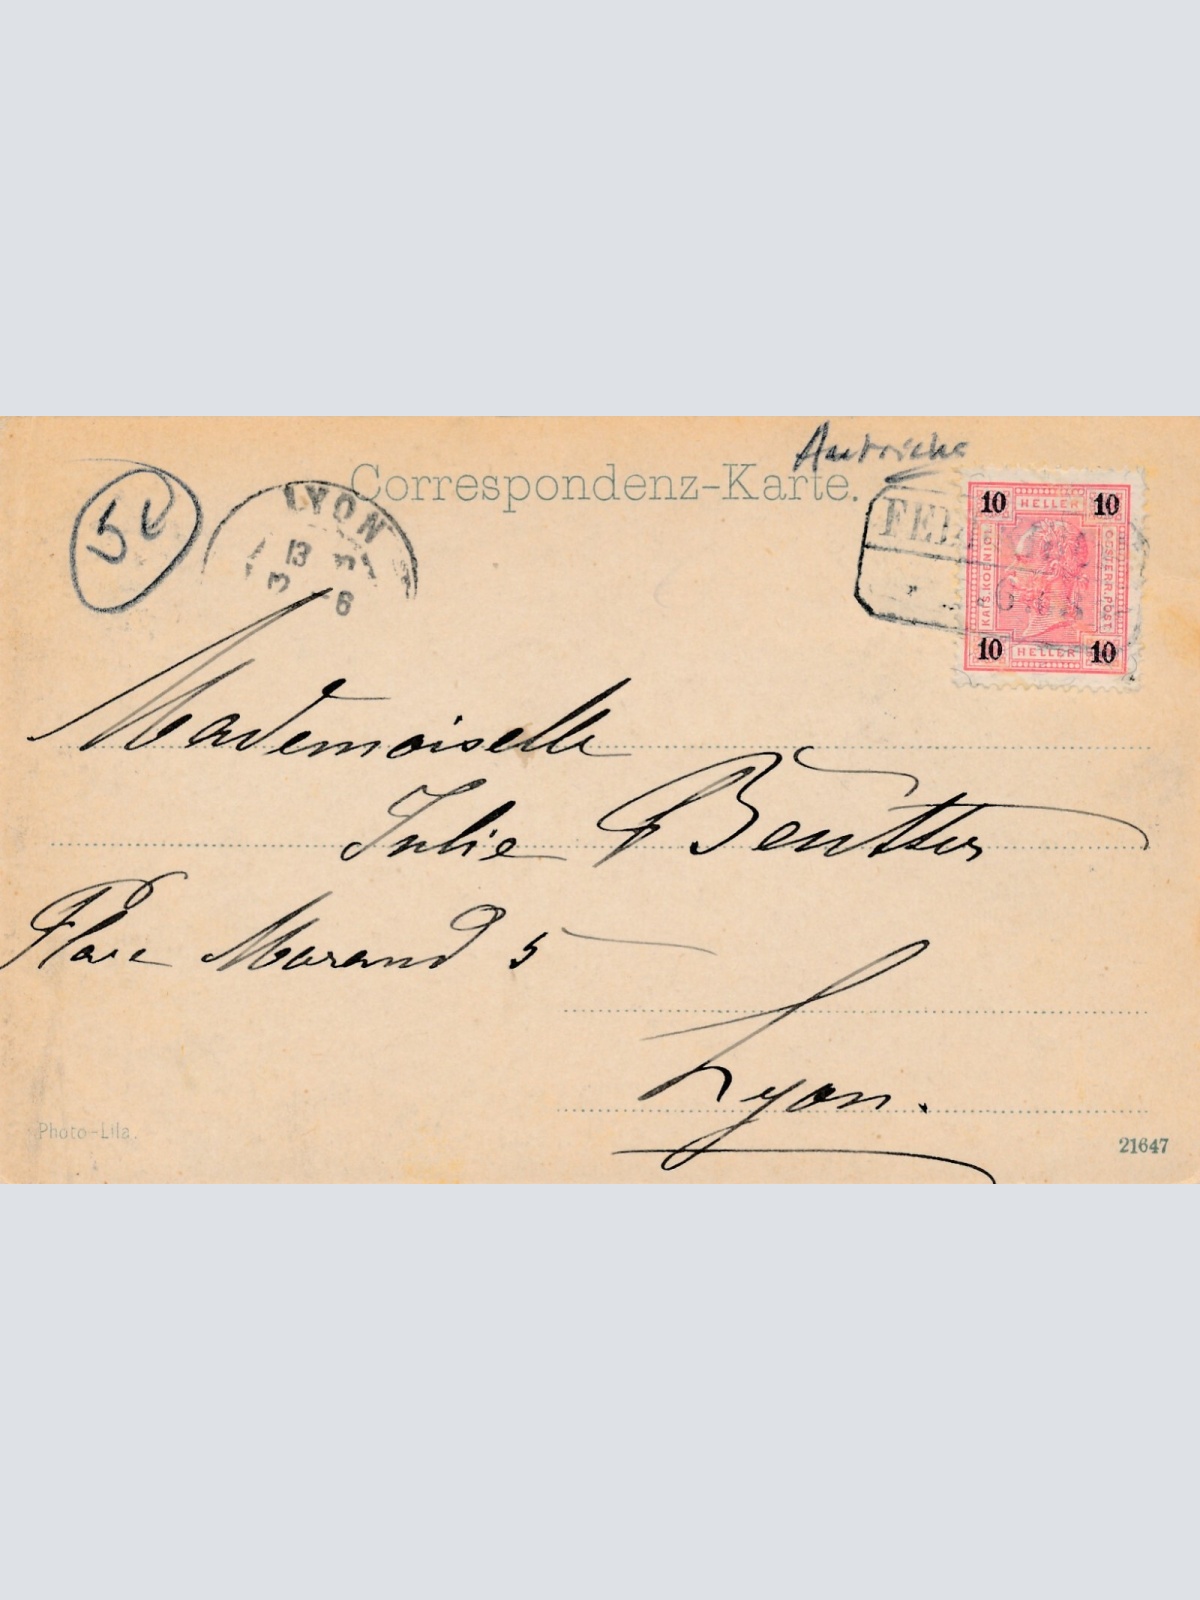 Autriche
Correspondenz-Karte.
LYON
13
3
6
10 HELLER 10
KAIS.KOENIGL.
OESTERR.POST
10 HELLER 10
Mademoiselle
Julie
Place Morand 5
Lyon.
Photo-Lila.
21647